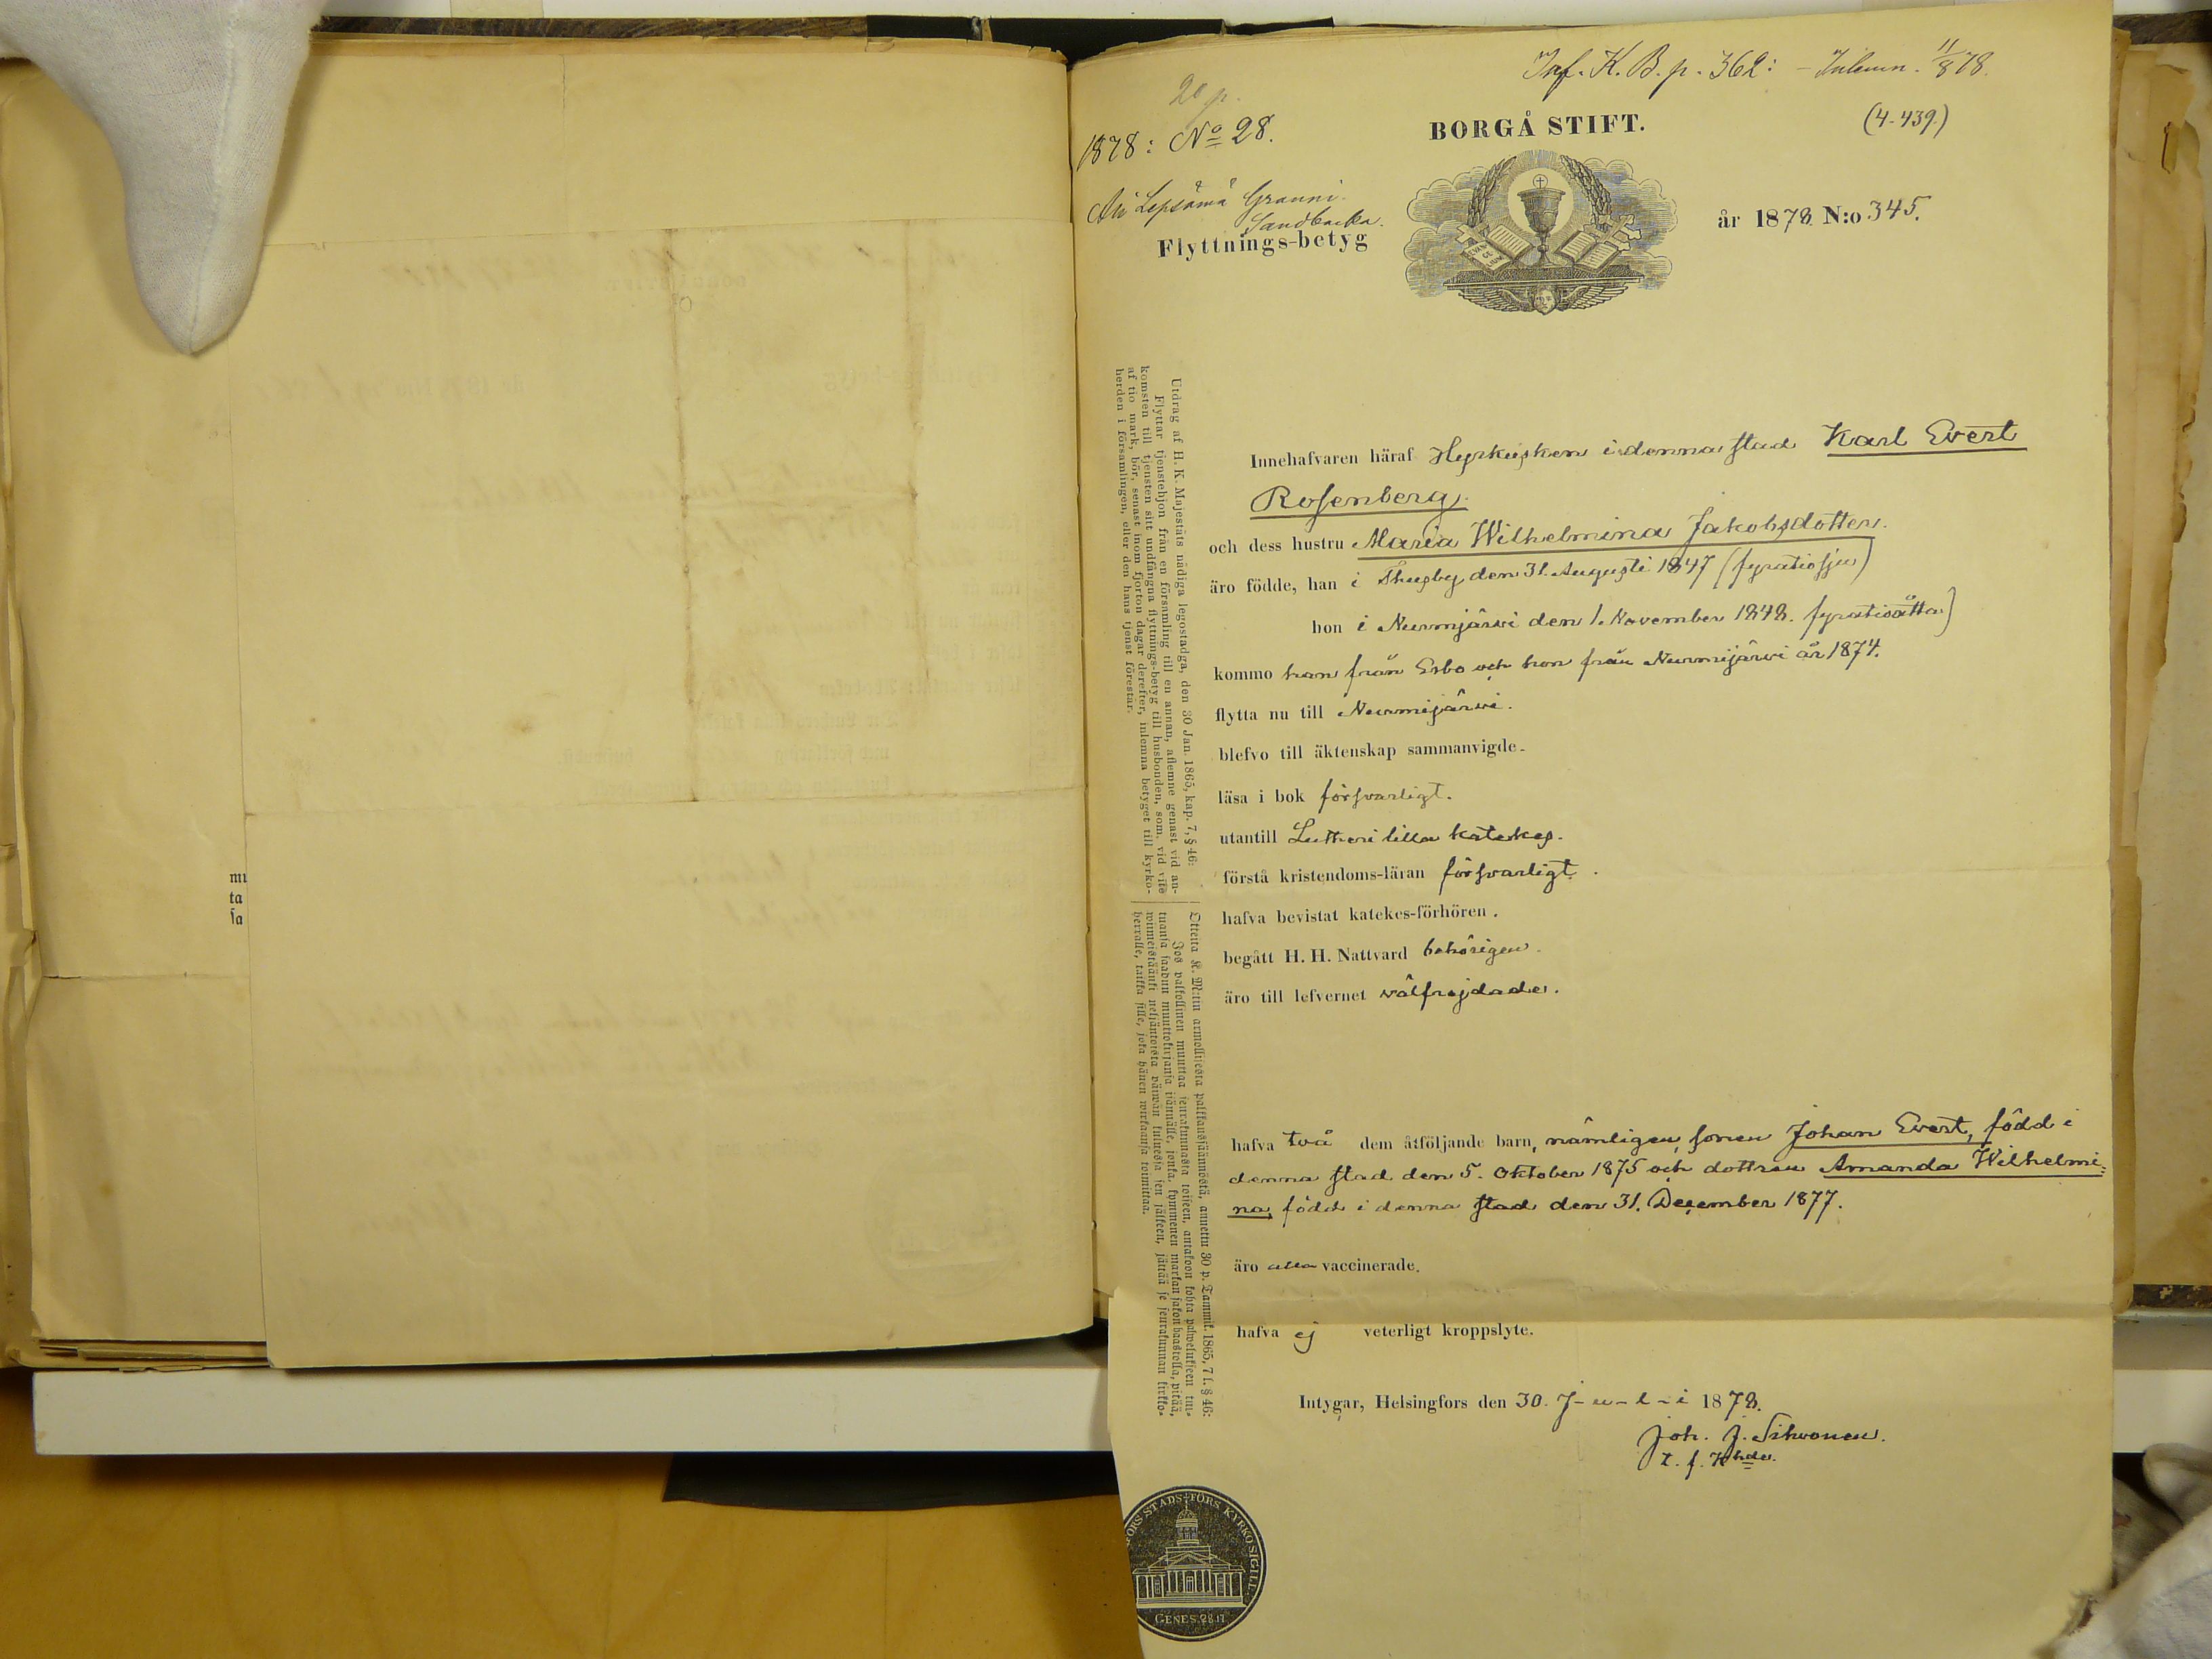 Inf. K. B. p. 362: - Inlemn. 11/8 78.
20 p.
1878: No 28.
BORGÅ STIFT.
(4-439)
Lepsämä Granni
Sandbacka.
Flyttnings-betyg
år 1878. N:o 345.
EVAN
GE
LIUM
Innehafvaren häraf Hyrkusken i denna stad Karl Evert
Rosenberg.
och dess hustru Maria Wilhelmina Jakobsdotter.
äro födde, han i Thusby den 31. Augusti 1847 (fyratiosju)
hon i Nurmijärvi den 1. November 1848. fyratioåtta)
kommo han från Esbo och hon från Nurmijärvi år 1874.
flytta nu till Nurmijärvi.
blefvo till äktenskap sammanvigde.
läsa i bok försvarligt.
utantill Lutheri lilla katekes.
förstå kristendoms-läran försvarligt.
hafva bevistat katekes-förhören.
begått H. H. Nattvard behörigen.
äro till lefvernet välfrejdade.
hafva två dem åtföljande barn, nämligen, sonen Johan Evert, född i
denna stad den 5. Oktober 1875 och dottren Amanda Wilhelmi=
na, född i denna stad den 31. December 1877.
äro alla vaccinerade.
hafva ej veterligt kroppslyte.
Intygar, Helsingfors den 30. J-u-l-i 1878.
Joh. J. Sihvonen.
t. f. Khde.
Utdrag af H. K. Majestäts nådiga legostadga, den 30 Jan. 1865, kap. 7, § 46:
Flyttar tjenstehjon från en församling till en annan, aflemne genast vid an-
komsten till tjensten sitt undfångna flyttnings-betyg till husbonden, som, vid vite
af tio mark, bör, senast inom fjorton dagar derefter, inlemna betyget till kyrko-
herden i församlingen, eller den hans tjenst förestår.
Otteita K. M:tin armollisesta palkkaussäännöstä, annettu 30 p. Tammik. 1865, 7 l. § 46:
Jos palkollinen muuttaa seurakunnasta toiseen, antakoon kohta palwelukseen tul-
tuansa saadun muuttokirjansa isännälle, jonka, kymmenen markan sakon haastolla, pitää,
wiimeistäänki neljäntoista päiwän kuluessa sen jälkeen, jättää se seurakunnan kirkko-
herralle, taikka sille, joka hänen wirkaansa toimittaa.
ORS STADS-FÖRS KYRKOSIGILL
GENES. 28.17
mi
ta
sa